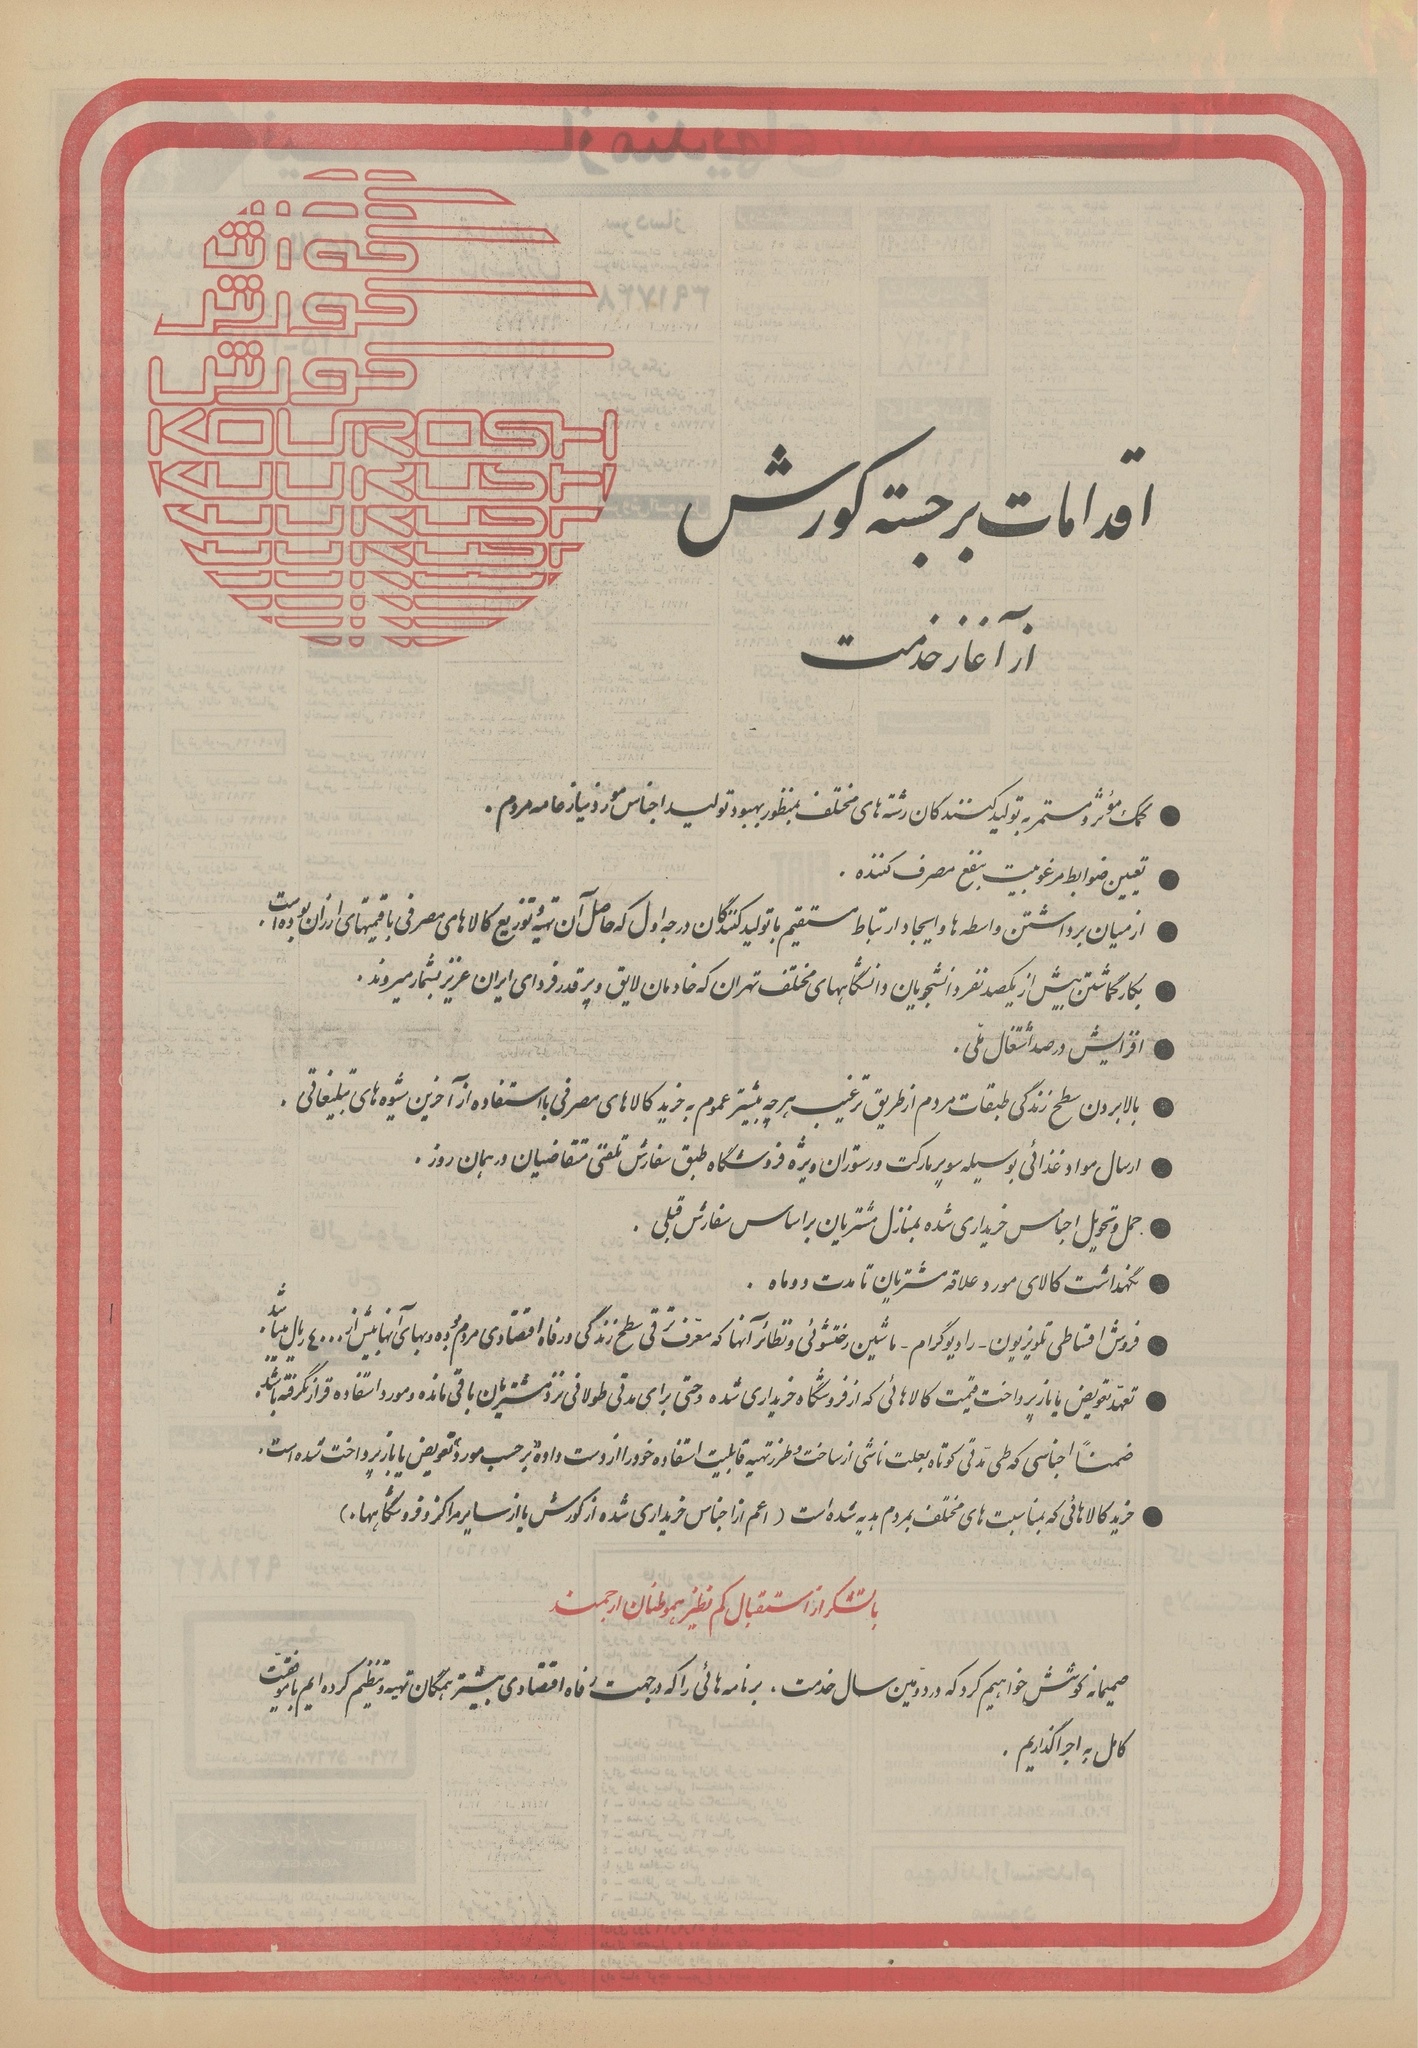 کورش
کورش
کورش
KOUROSH
اقدامات برجسته کورش
از آغاز خدمت
● کمک مؤثر و مستمر به تولیدکنندگان رشته های مختلف بمنظور بهبود تولید اجناس مورد نیاز عامه مردم .
● تعیین ضوابط مرغوبیت بنفع مصرف کننده .
● از میان برداشتن واسطه ها و ایجاد ارتباط مستقیم با تولیدکنندگان درجه اول که حاصل آن تهیه و توزیع کالاهای مصرفی با قیمتهای ارزان بوده است .
● بکار گماشتن بیش از یکصد نفر دانشجویان دانشگاههای مختلف تهران که خادمان لایق و پرقدر فردای ایران عزیز بشمار میروند .
● افزایش درصد اشتغال ملّی .
● بالا بردن سطح زندگی طبقات مردم از طریق ترغیب هرچه بیشتر عموم به خرید کالاهای مصرفی با استفاده از آخرین شیوه های تبلیغاتی .
● ارسال مواد غذائی بوسیله سوپرمارکت و رستوران ویژه فروشگاه طبق سفارش تلفنی متقاضیان در همان روز .
● حمل و تحویل اجناس خریداری شده بمنازل مشتریان بر اساس سفارش قبلی .
● نگهداشت کالای مورد علاقه مشتریان تا مدت دو ماه .
● فروش اقساطی تلویزیون - رادیوگرام - ماشین رختشوئی و نظائر آنها که معرّف ترقی سطح زندگی و رفاه اقتصادی مردم بوده و بهای آنها بیش از ۴۰۰۰ ریال میباشد .
● تعهد تعویض یا بازپرداخت قیمت کالاهائی که از فروشگاه خریداری شده و حتی برای مدتی طولانی نزد مشتریان باقی مانده و مورد استفاده قرار نگرفته باشد .
ضمناً اجناسی که طی مدّتی کوتاه بعلت ناشی از ساخت و طرز تهیه قابلیت استفاده خود را از دست داده برحسب مورد تعویض یا بازپرداخت شده است .
● خرید کالاهائی که بمناسبت های مختلف بمردم هدیه شده است ( اعم از اجناس خریداری شده از کورش یا از سایر مراکز و فروشگاهها . )
با تشکر از استقبال کم نظیر هموطنان ارجمند
صمیمانه کوشش خواهیم کرد که در دوّمین سال خدمت ، برنامه هائی را که در جهت رفاه اقتصادی بیشتر همگان تهیه و تنظیم کرده ایم با موفقیّت
کامل به اجرا گذاریم .